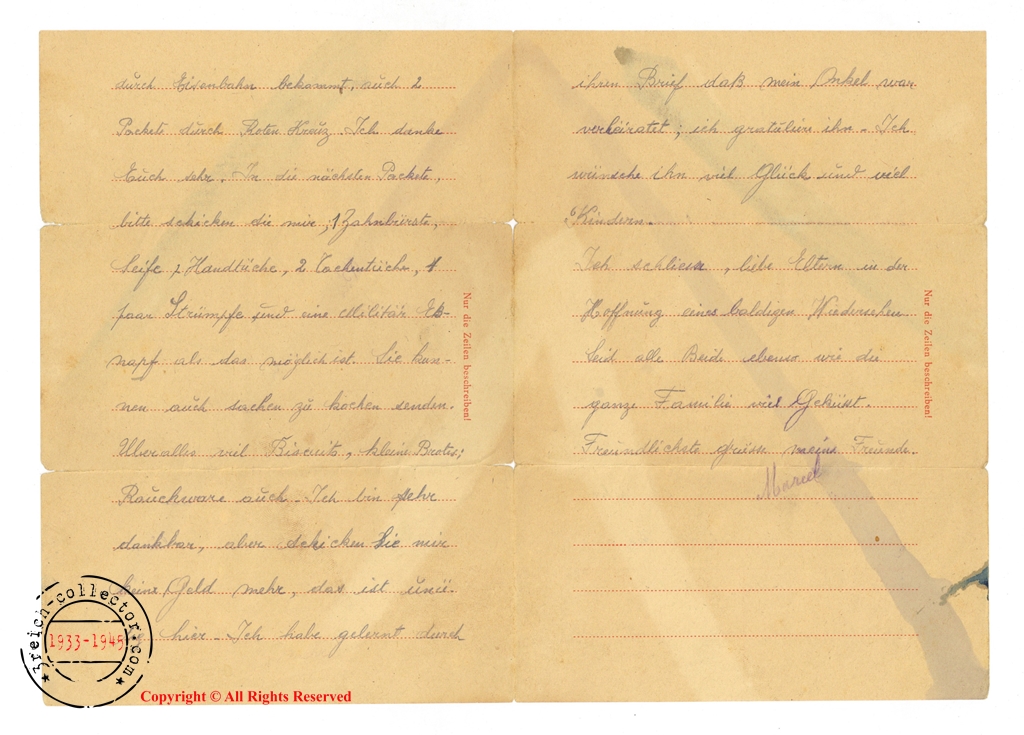 durch Eisenbahn bekommt, auch 2
Packete durch Roten Kreuz. Ich danke
Euch sehr. In die nächsten Packete,
bitte schicken die mir, 1 Zahnbürste,
Seife, Handtüche, 2 Tochentüche, 4
paar Strümpfe und eine Militär Eß-
napf als das möglich ist. Sie kön-
nen auch sachen zu kochen senden.
Uberalles viel Biscuits, kleine Brotes;
Rauckware auch. Ich bin sehr
dankbar, aber schicken Sie mir
keine Geld mehr, das ist
hier. Ich habe gelernt durch
Nur die Zeilen beschreiben!
ihren Brief daß mein Onkel war
verheiratet; ich ihn. Ich
wünsche ihn viel Glück und viel
Kindern.
Ich schliesse, liebe Eltern in der
Hoffnung eines baldigen Wiedersehen
Seid alle Beide ebenso wie die
ganze Familie viel Geküsst.
Freundlichste grüsse meine Freunde.
Marcel
Nur die Zeilen beschreiben!
3reich-collector.com
1933-1945
Copyright © All Rights Reserved